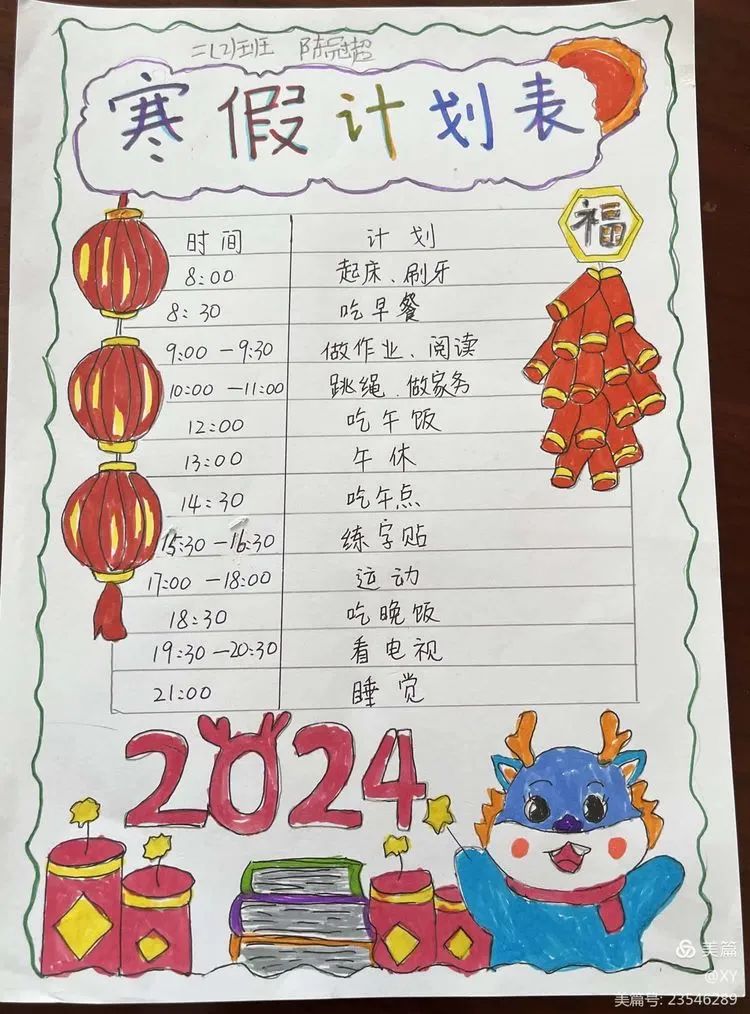 二(2)班 陈冠超
寒假计划表
福
时间 计划
8:00 起床、刷牙
8:30 吃早餐
9:00-9:30 做作业、阅读
10:00-11:00 跳绳、做家务
12:00 吃午饭
13:00 午休
14:30 吃午点
15:30-16:30 练字贴
17:00-18:00 运动
18:30 吃晚饭
19:30-20:30 看电视
21:00 睡觉
2024
美篇
@XY
美篇号: 23546289